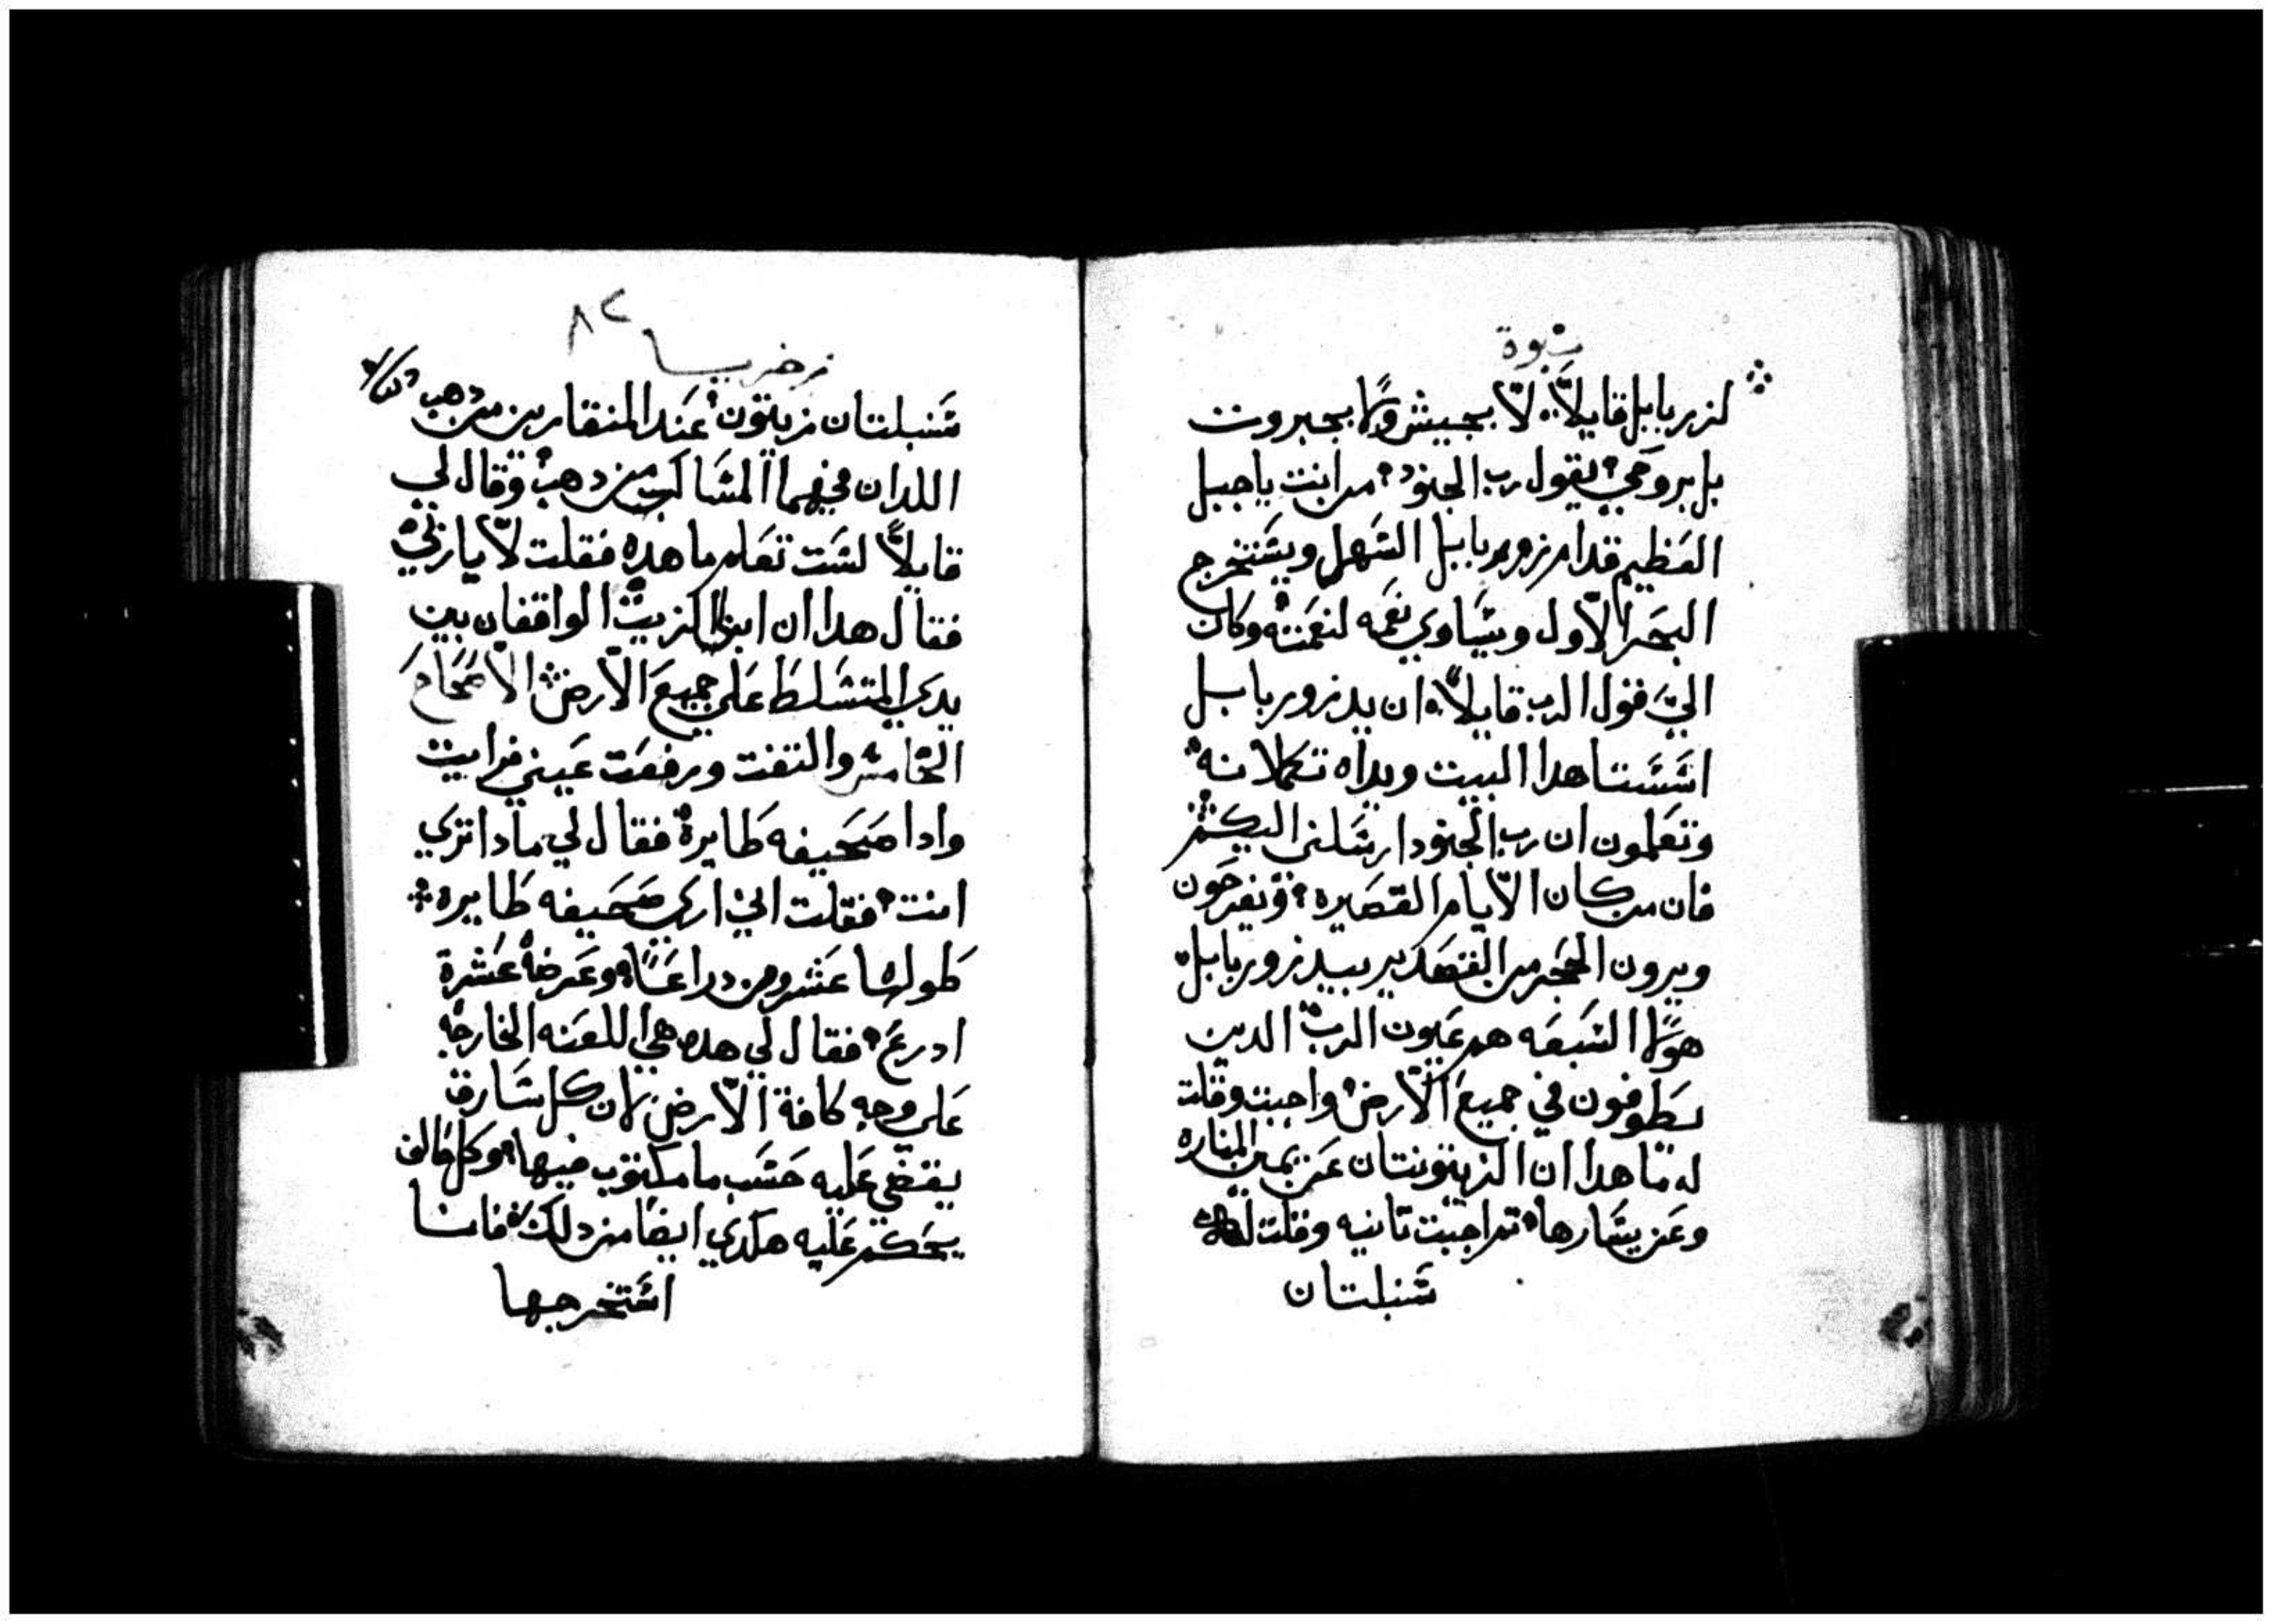 نبوة
لزربابل قايلاً لا بجيش ولا بجبروت
بل بروحي يقول رب الجنود من انت ياجبل
العظيم قدام زوربابل السهل ويستخرج
الحجر الاول ويساوي نعمه لنعمته وكان
اليّ قول الرب قايلاً ان يد زوربابل
اسستا هدا البيت ويداه تكملانه
وتعلمون ان رب الجنود ارسلني اليكم
فان من كان الايام القصيره وتفرحون
ويرون الحجر من القصدير بيد زوربابل
هولا السبعه هم عيون الرب الدين
يطوفون في جميع الارض واجبت وقلت
له ما هدا ان الزيتونتان عن يمين المناره
وعن يسارها تم اجبت تانيه وقلت له
سنبلتان
٨٢
زخريا
سنبلتان زيتون عند المنقارين من دهب
اللدان فيهما المساكب من دهب وقال لي
قايلاً لست تعلم ما هده فقلت لا يا ربي
فقال هدا ان ابنا الزيت الواقفان بين
يدي المتسلط علي جميع الارض الاصحاح
الخامس والتفت ورفعت عيني فرايت
وادا صحيفه طايرة فقال لي مادا تري
انت فقلت اني اري صحيفه طايره
طولها عشرون دراعًا وعرضه عشرة
ادرع فقال لي هده هي اللعنه الخارجه
علي وجه كافة الارض لان كل سارق
يقتضي عليه حسب ما مكتوب فيها وكل حالف
يحكم عليه هكدي ايضا من دلك فانا
استخرجها